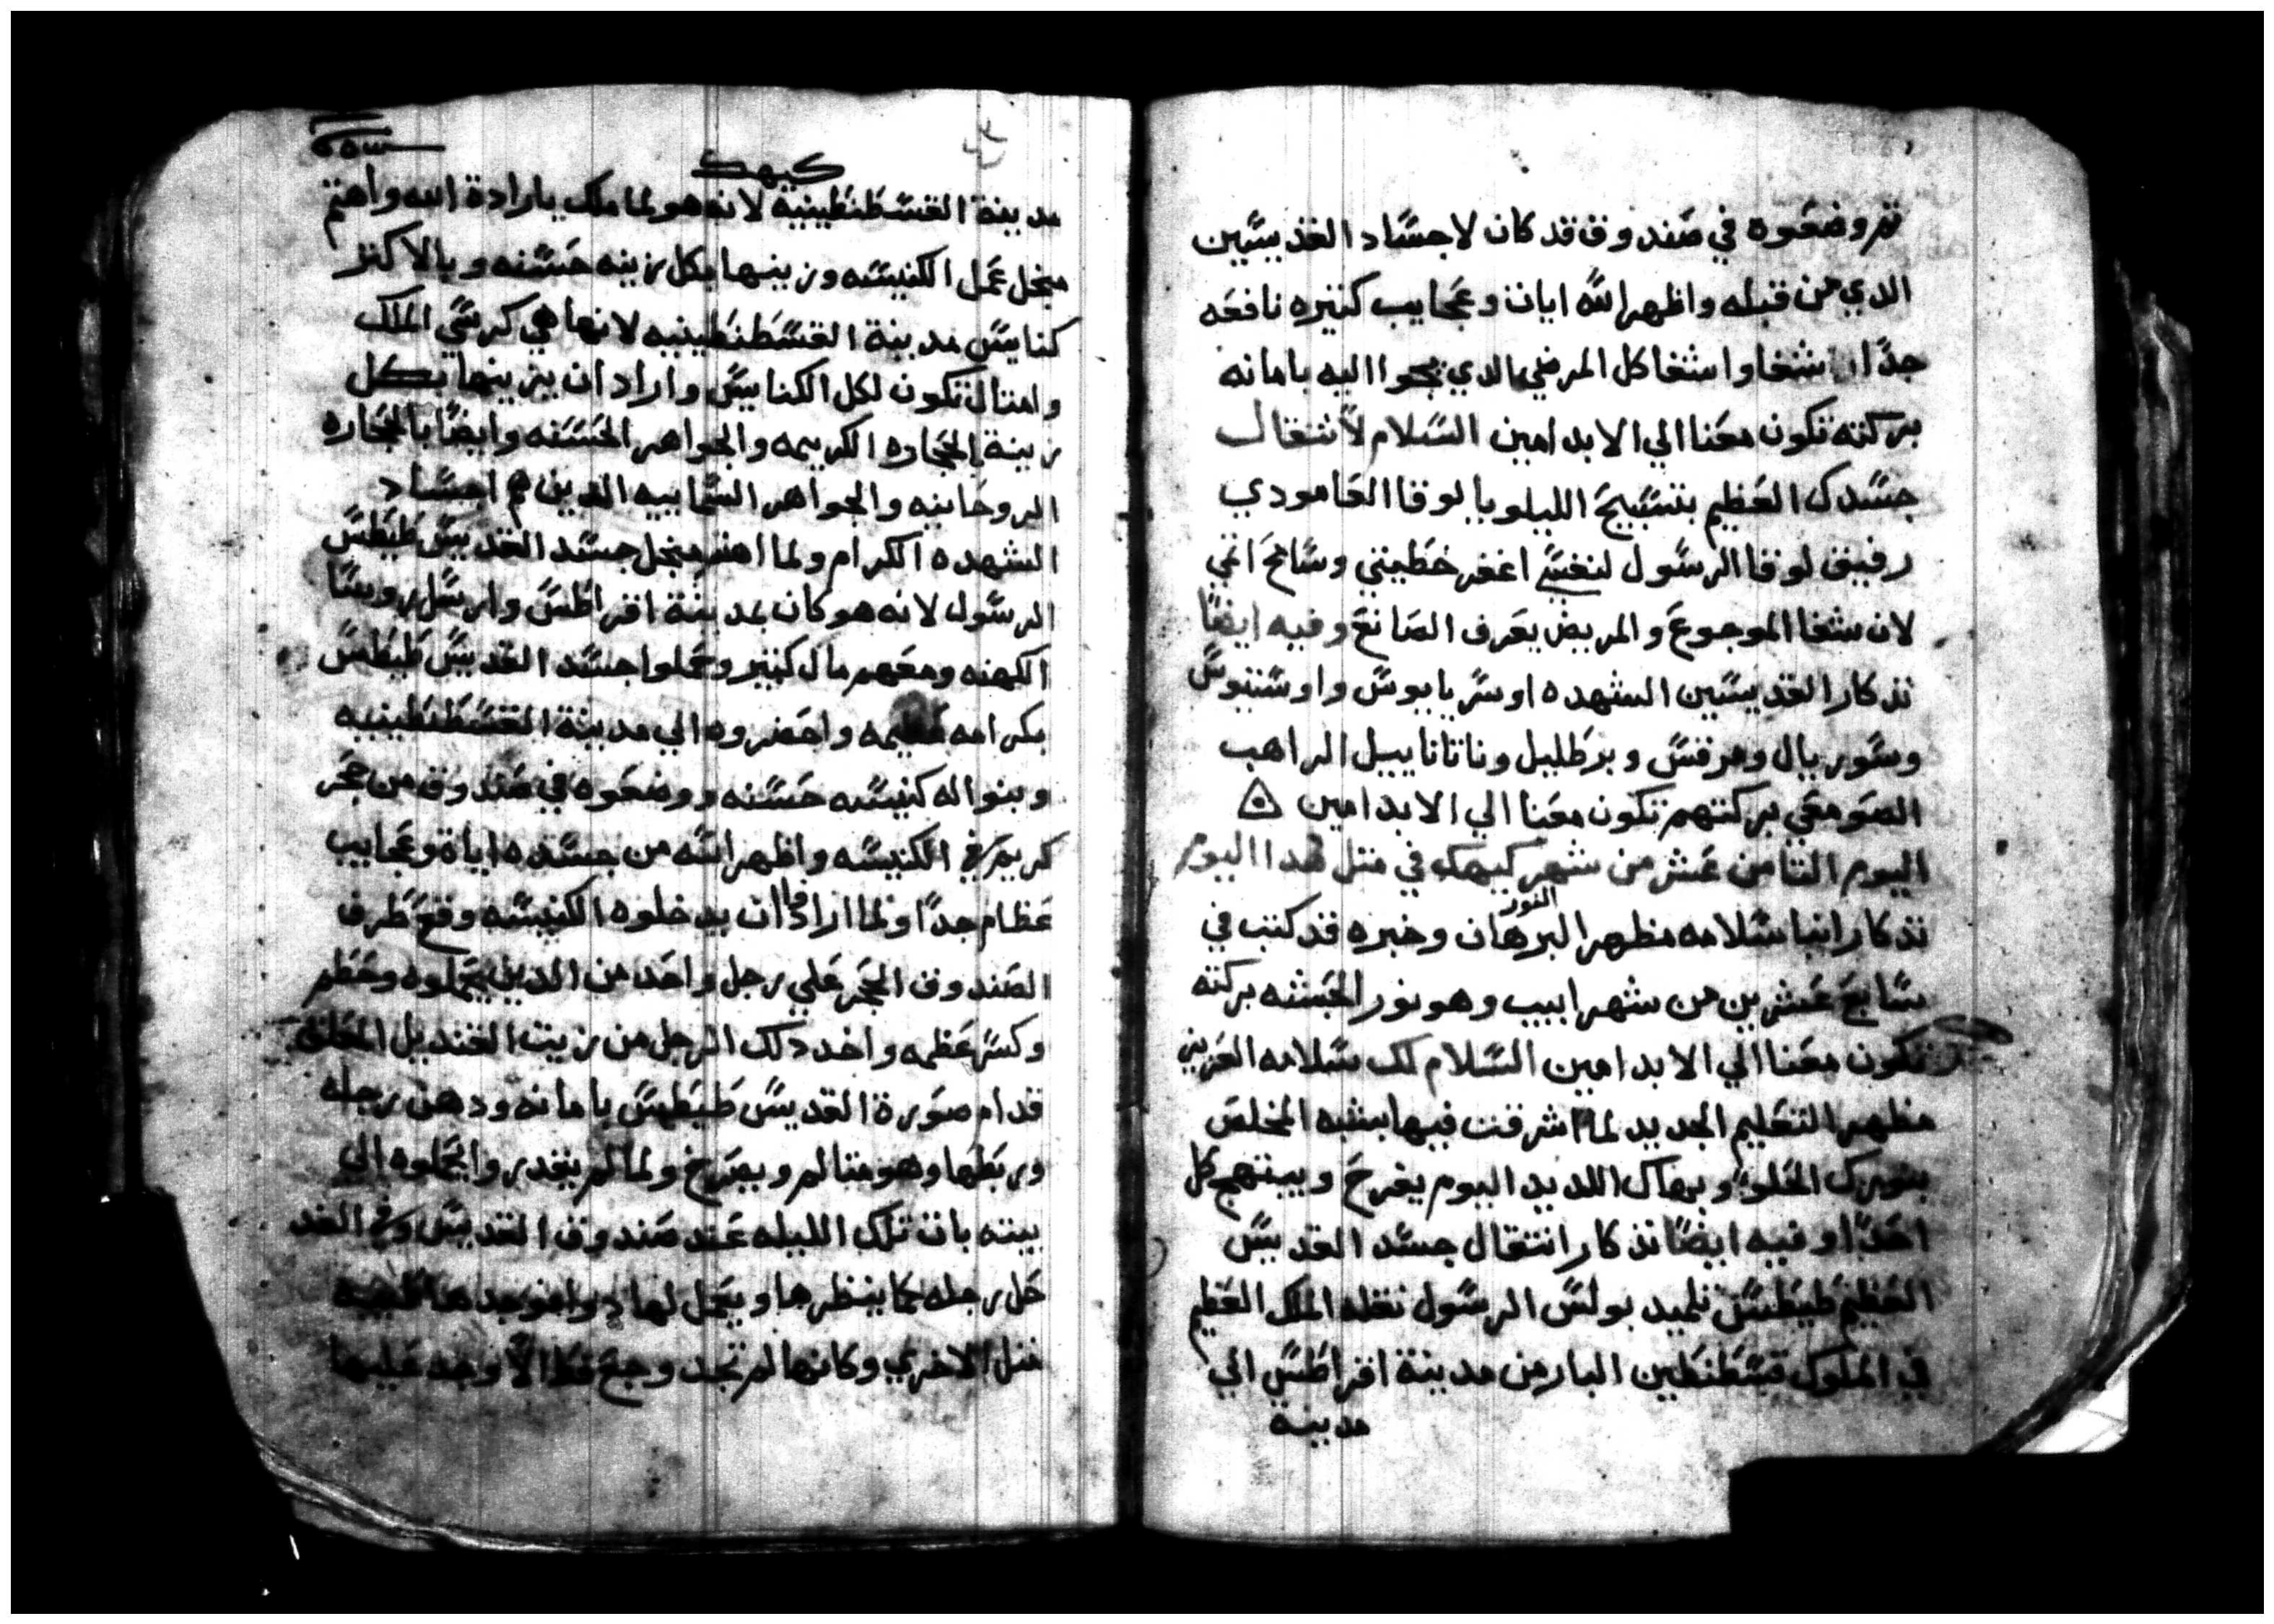 ثم وضعوه في صندوق قد كان لاجساد القديسين
الدي من قبله واظهر الله ايات وعجايب كتيره نافعه
جدًا شفا واشفا كل المرضي الدي يجوا اليه بامانه
بركته تكون معنا الي الابد امين السلام لاشتغال
جسدك العظيم بتسبيح الليلويا يا لوقا العامودي
رفيق لوقا الرسول لنفسي اغفر خطيتي وسامح اتمي
لان شفا الموجوع والمريض يعرف الصانع وفيه ايضًا
تدكار القديسين الشهده اوسريايوس واوسنيوس
وسوريال ومرقس وبرطلبل وناتانابيل الراهب
الصومعي بركتهم تكون معنا الي الابد امين
اليوم التامن عشر من شهر كيهك في متل هدا اليوم
تدكار انبا سلامه مظهر البرهان النور وخبره قد كتب في
سابع عشرين من شهر ابيب وهو نور الحبشه بركته
تكون معنا الي الابد امين السلام لك سلامه العزيز
مظهر التعليم الجديد لما اشرقت فيها بشبه المخلص
بنورك الحلو وبهاك اللديد اليوم يفرح ويبتهج كل
احدًا وفيه ايضًا تدكار انتقال جسد القديس
العظيم طيطس تلميد بولس الرسول نقله الملك العظيم
في الملوك قسطنطين البار من مدينة اقراطس الي
مدينة
كيهك
مدينة القسطنطينيه لانه هو لما ملك بارادة الله واهتم
منجل عمل الكنيسه وزينها بكل زينه حسنه وبالاكتر
كنايس مدينة القسطنطينيه لانها هي كرسي الملك
وامتال تكون لكل الكنايس واراد ان يزينها بكل
زينة الحجاره الكريمه والجواهر الحسنه وايضًا بالحجاره
الروحانيه والجواهر السمايييه الدين هم اجساد
الشهده الكرام ولما اهتم منجل جسد القديس طيطس
الرسول لانه هو كان بمدينة اقراطس وارسل روسا
الكهنه ومعهم مال كتير وحملوا جسد القديس طيطس
بكرامه عظيمه واحضروه الي مدينة القسطنطينيه
وبنوا له كنيسه حسنه ووضعوه في صندوق من حجر
كريم في الكنيسه واظهر الله من جسده اياة وعجايب
عظام جدًا ولما ارادوا ان يدخلوه الكنيسه وقع طرف
الصندوق الحجر علي رجل واحد من الدين يحملوه وحطم
وكسر عظمه واخد دلك الرجل من زيت القنديل المعلق
قدام صورة القديس طيطس بامانه ودهن رجله
وربطها وهو متالم ويصرخ ولما لم يقدروا يحملوه الي
بيته بات تلك الليله عند صندوق القديس وفي الغد
حل رجله كما ينظرها ويعمل لها دوا فوجدها
متل الاخري وكانها لم تجد وجع قط الا وجد عليها